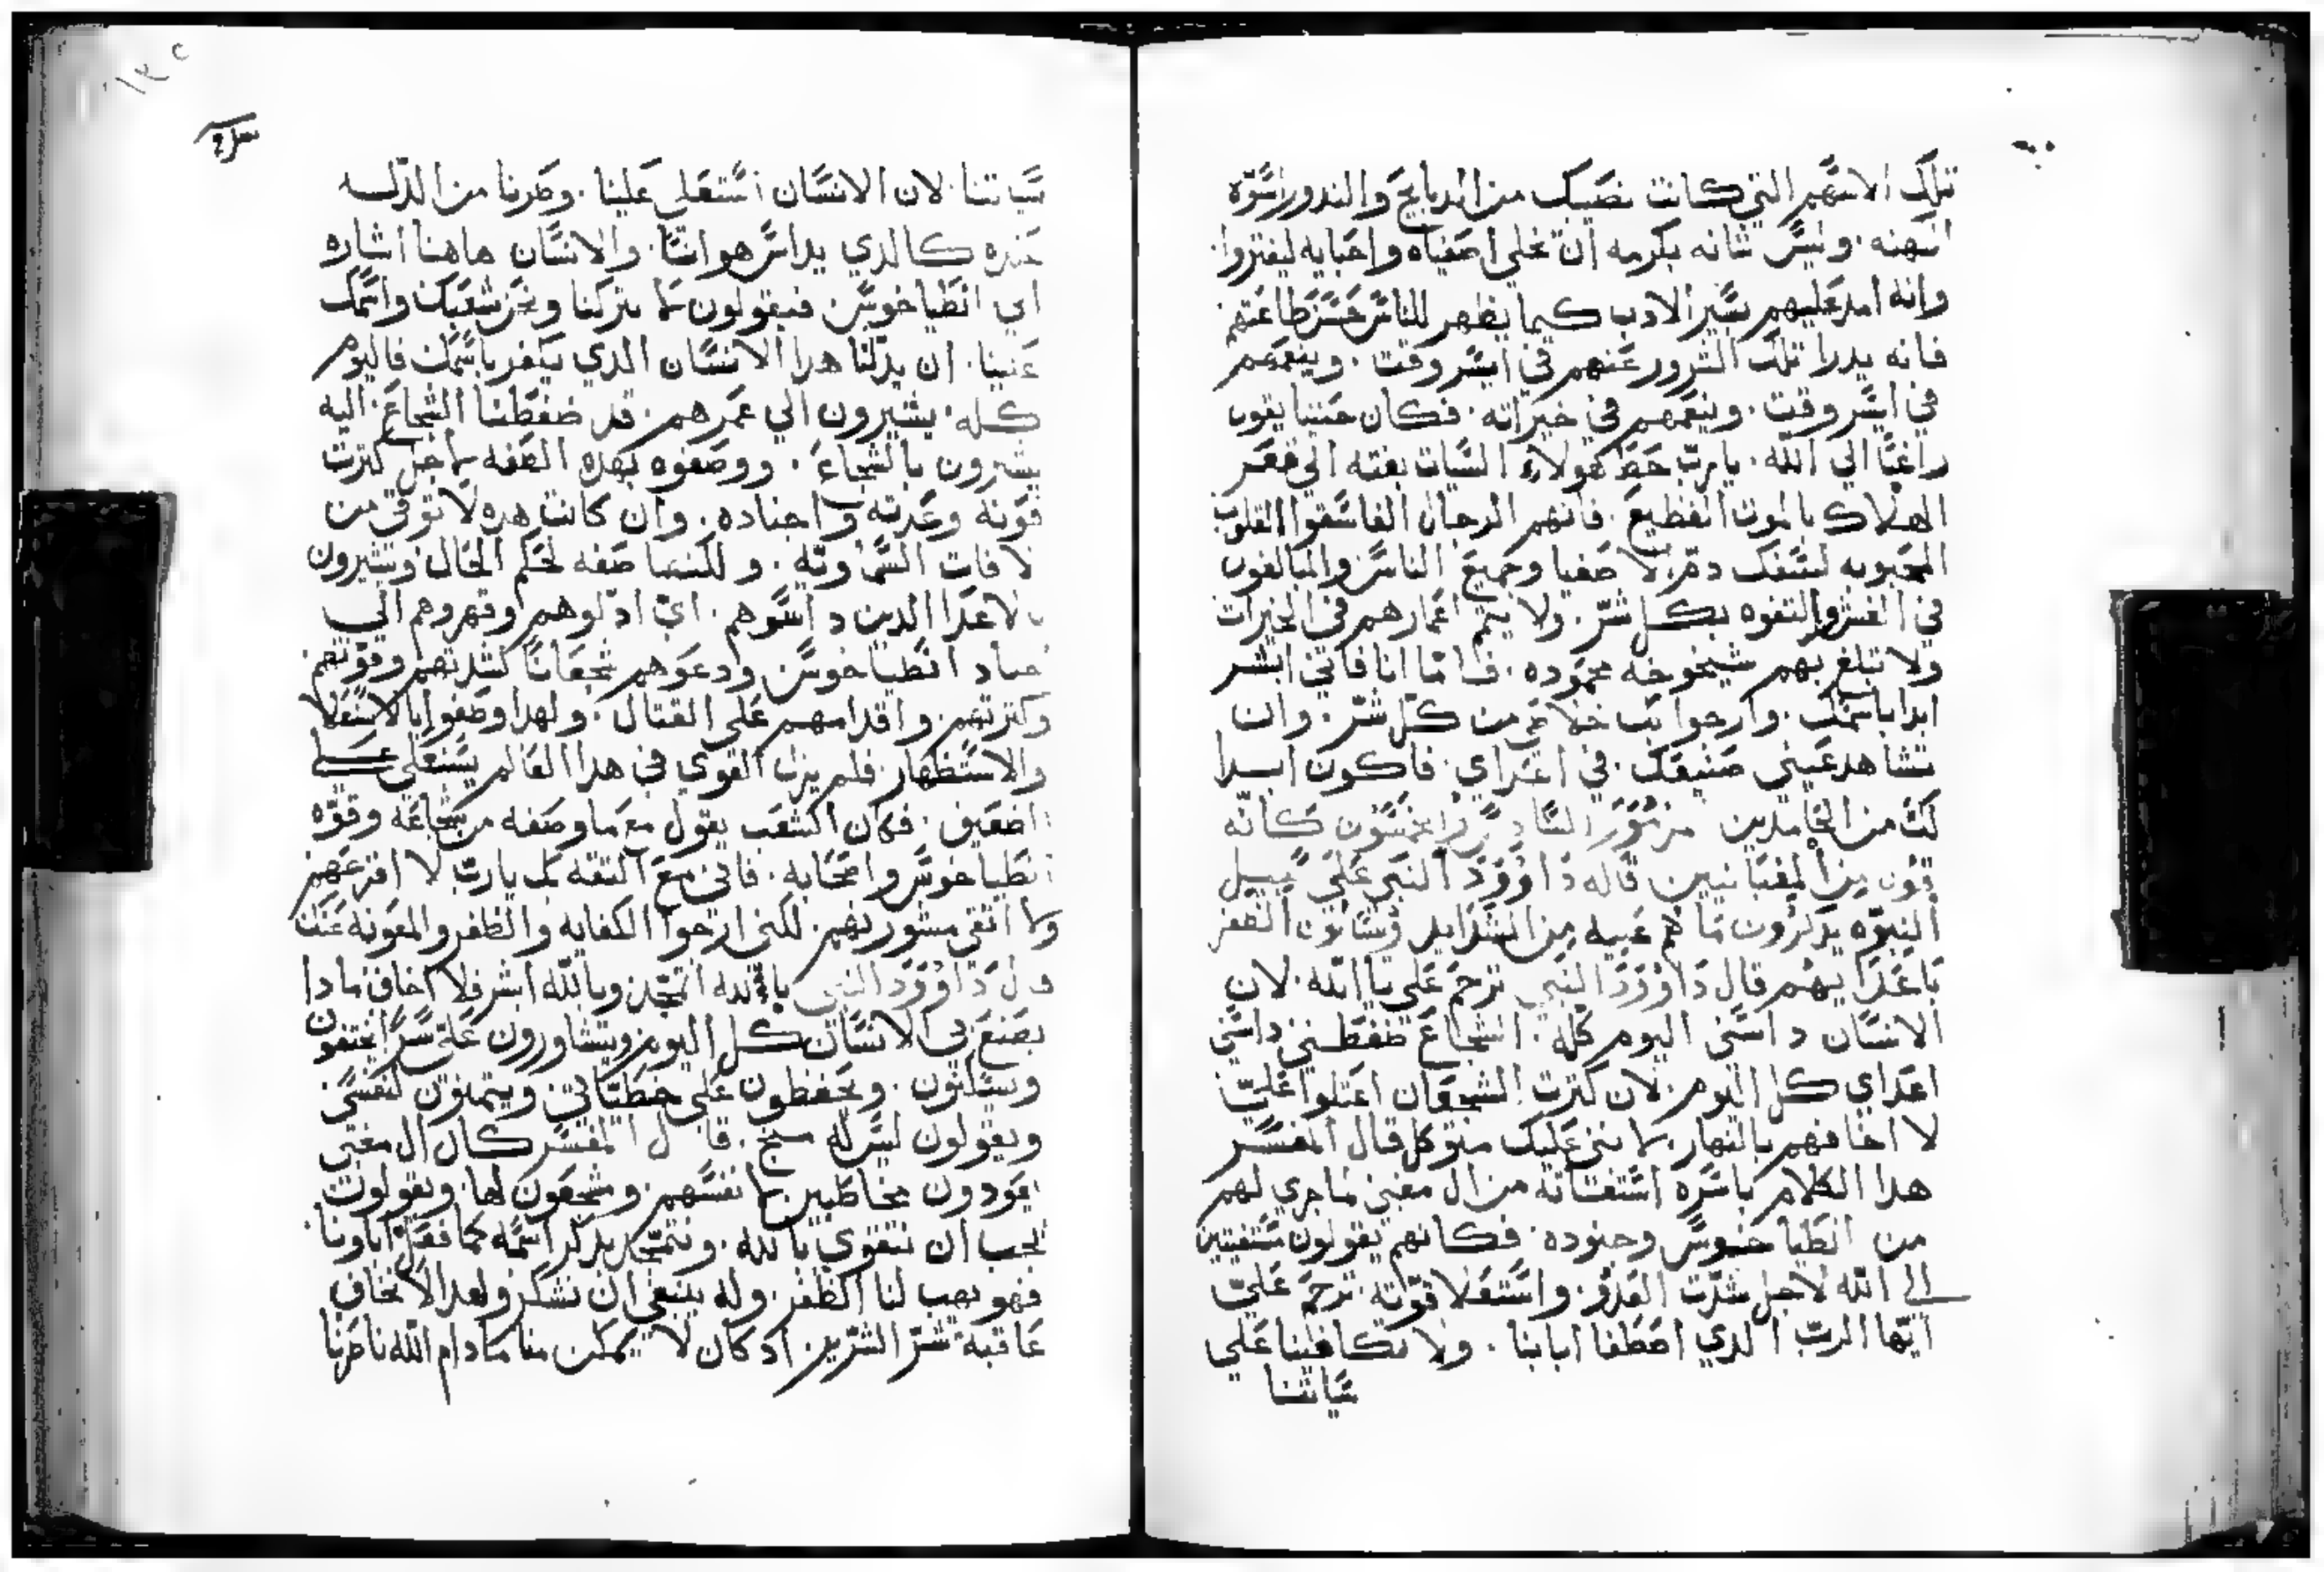 تلك الاسهم التي كانت نصيبك من الدبايح والندور اسوه
انتهنه. وليس شانه بكرمه ان تخلي اصفياه واحبايه ليفتروا.
وانه امد عليهم يسير الادب كيما يظهر للناس حسن طاعتهم
فانه يدرا تلك الشرور عنهم في ايسر وقت. وينعمهم
في ايسر وقت. وينعمهم في خيراته. فكان حننيا يقول
راغبًا الي الله. يا رب حط هولاء السات بغته الي قعر
الهلاك بالموت الفظيع. فانهم الرجال الفاسقوا القلوب
المحبوبه لسفك دم الاصفيا وجميع الناس والمبالغون
في الغش والتفوه بكل شر. ولا يتم اعمارهم في الخيرات
ولا تبلغ بهم شيخوخه محموده. فاما انا فاني ابشر
ابدا باسمك. وارجوا بك خلاصي من كل شر. وان
تشاهد عيني صنيعك. في اعداي. فاكون ابدا
لك من الحامدين مزمور السادس والخمسون كانه
يكون من المفتانيين قاله داوود النبي علي سبيل
النبوه يدكرون ما هم عبيه من الشدايد ويسالون الظفر
باعدايهم قال داوود النبي ترحم علي يا الله. لان
الانسان داسني اليوم كله. الشجاع ضغطني داسني
اعداي كل اليوم. لان كترت الشجعان اعتلوا علي
لا اخافهم بالنهار. لانني عليك متوكل قال المفسر
هدا الكلام باسره استغتاته من ال مغبي لما جري لهم
من انطياخوس وجنوده. فكانهم يقولون مستغيتين
الي الله لاجل شدت العدو. واستعلا قوته. ترحم علي
ايها الرب الدي اصطفا ابانا. ولا تكافينا علي
سياتنا
سياتنا. لان الانسان استعلي علينا. وصرنا من الدل
عنده كالدي يداس هواننا. والانسان هاهنا اشاره
اي انطياخوس. فيقولون لما تتركنا ونحن شعبك واسمك
علينا. ان يدلنا هدا الانسان الدي يكفر باسمك فاليوم
كله. يشيرون الي عمرهم. قد ضغطنا الشجاع. اليه
يشيرون بالشجاع. ووصفوه بهده الصفه لاجل كترت
قوته وعدته واجناده. وان كانت هده لا توقي من
لافات السماويه. ولكنها صفه لحكم الحال ويشيرون
بالاعدا الدين داسوهم. اي ادلوهم وقهروهم الي
اجناد انطياخوس ودعوهم شجعانًا لشدتهم وقوتهم
وكترتهم. واقدامهم علي القتال. ولهدا وصفوا بالاستعلا
والاستظهار. فلم يزل القوي في هدا العالم يستعلي علي
الضعيف. فكان الشعب يقول مع ما وصفه من شجاعه وقوه
انطياخوس واصحابه. فاني مع التقه بك يا رب لا افزعهم
ولا اتقي مشورتهم. لكني ارجوا الكفايه والظفر والمعونه عنك
قال داوود النبي بالله اتمجد وبالله ابشر فلا اخاف ما دا
يصنع بي الانسان كل اليوم ويتشاورون علي سرًا يختفون
ويسالتون. ويحفظون علي خطتاتي ويتمنون لنفسي
ويقولون ليس له منج. قال المفسر كان ال مغبي
يعودون مخاطبين لانفسهم. ومشجعون لها. ويقولون
يجب ان نتقوي بالله. ونتمجد بدكر اسمه كما فعل اباونا.
فهو يهب لنا الظفر. وله ينبغي ان نشكر ولهدا لا نخاف
عاقبة شر الشرير. اد كان لا يمكن منا ما دام الله ناصرنا